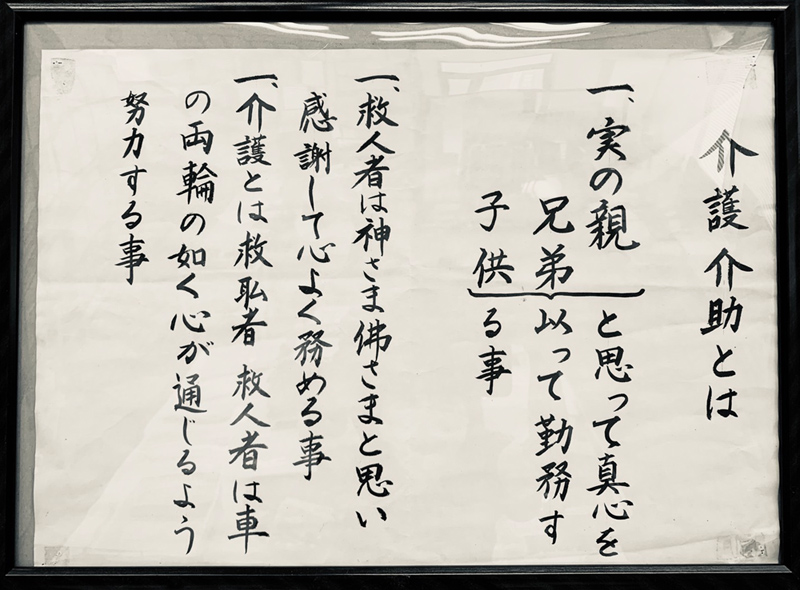 介護介助とは
一、実の親
兄弟
子供
と思って真心を
以って勤務す
る事
一、救人者は神さま佛さまと思い
感謝して心よく務める事
一、介護とは救聖者 救人者は車
の両輪の如く心が通じるよう
努力する事